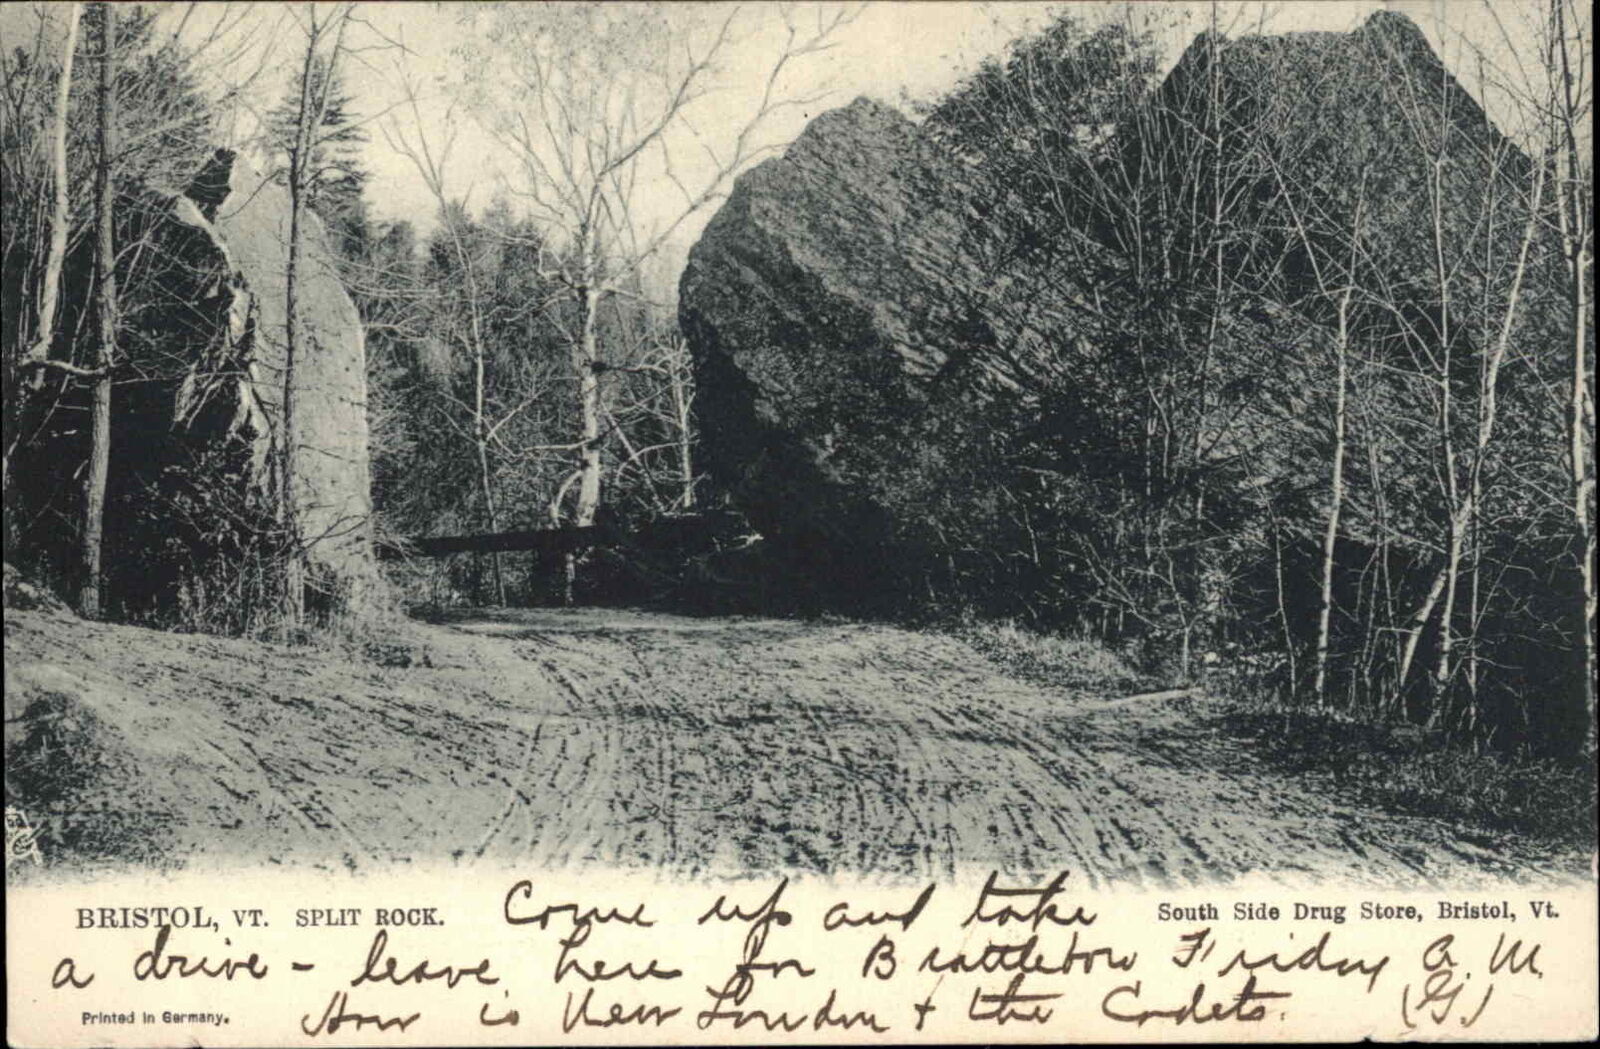 BRISTOL, VT. SPLIT ROCK.
South Side Drug Store, Bristol, Vt.
Come up and take
a drive - leave here for Brattleboro Friday A.M.
How is New London + the Cadets. (G.)
Printed in Germany.